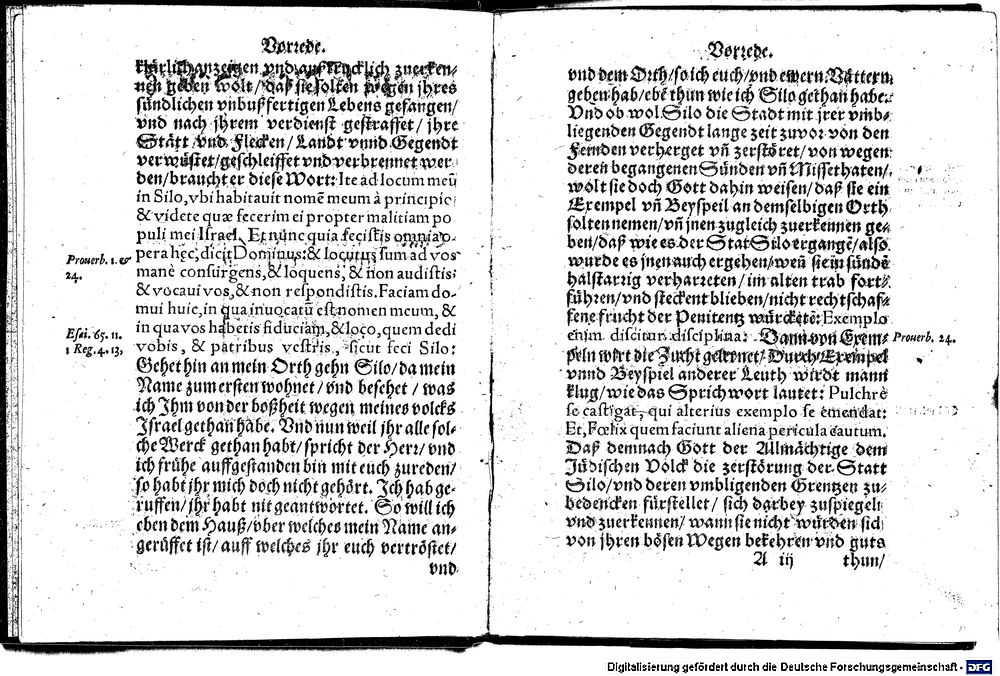 Vorrede.
klärlich anzeigen vnd außtrucklich zuerken-
nen geben wolt/ daß sie solten wegen jhres
sündlichen vnbußfertigen Lebens gefangen/
vnd nach jhrem verdienst gestraffet/ jhre
Stätt vnd Flecken/ Landt vnnd Gegendt
verwüstet/ geschleiffet vnd verbrennet wer
den/ braucht er diese Wort: Ite ad locum meũ
in Silo, vbi habitauit nomẽ meum à principio
& videte quæ fecerim ei propter malitiam po
puli mei Israel. Et nunc quia fecistis omnia o-
pera hęc, dicit Dominus: & locutus sum ad vos
manè consurgens, & loquens, & non audistis:
& vocaui vos, & non respondistis. Faciam do-
mui huic, in qua inuocatũ est nomen meum, &
in qua vos habetis fiduciam, & loco, quem dedi
vobis, & patribus vestris, sicut feci Silo:
Gehet hin an mein Orth gehn Silo/ da mein
Name zum ersten wohnet/ vnd besehet/ was
ich Ihm von der boßheit wegen meines volcks
Israel gethan habe. Vnd nun weil jhr alle sol-
che Werck gethan habt/ spricht der Herr/ vnd
ich frühe auffgestanden bin mit euch zureden/
so habt jhr mich doch nicht gehört. Ich hab ge-
ruffen/ jhr habt nit geantwortet. So will ich
eben dem Hauß/ vber welches mein Name an-
gerüffet ist/ auff welches jhr euch vertröstet/
vnd
Prouerb. 1. &
24.
Esai. 65. 11.
1 Reg. 4. 13,
Vorrede.
vnd dem Orth/ so ich euch/ vnd ewern Vättern
geben hab/ ebẽ thun wie ich Silo gethan habe.
Vnd ob wol Silo die Stadt mit jrer vmb-
liegenden Gegendt lange zeit zuvor von den
Feinden verherget vñ zerstöret/ von wegen
deren begangenen Sünden vñ Missethaten/
wolt sie doch Gott dahin weisen/ daß sie ein
Exempel vñ Beyspeil an demselbigen Orth
solten nemen/ vñ jnen zugleich zuerkennen ge-
ben/ daß wie es der Stat Silo ergangẽ/ also
wurde es jnen auch ergehen/ weñ sie in sündẽ
halstarrig verharreten/ im alten trab fort-
führen/ vnd steckent blieben/ nicht rechtschaf-
fene frucht der Penitentz würcketẽ: Exemplo
enim discitur disciplina: Dann von Exem-
peln wirt die Zucht gelernet/ Durch Exempel
vnnd Beyspiel anderer Leuth wirdt mann
klug/ wie das Sprichwort lautet: Pulchrè
se castigat, qui alterius exemplo se emendat:
Et, Fœlix quem faciunt aliena pericula cautum.
Daß demnach Gott der Allmächtige dem
Jüdischen Volck die zerstörung der Statt
Silo/ vnd deren vmbligenden Grentzen zu-
bedencken fürstellet/ sich darbey zuspiegeln
vnd zuerkennen/ wann sie nicht würden sich
von jhren bösen Wegen bekehren vnd guts
A iij thun/
Prouerb. 24.
Digitalisierung gefördert durch die Deutsche Forschungsgemeinschaft · DFG